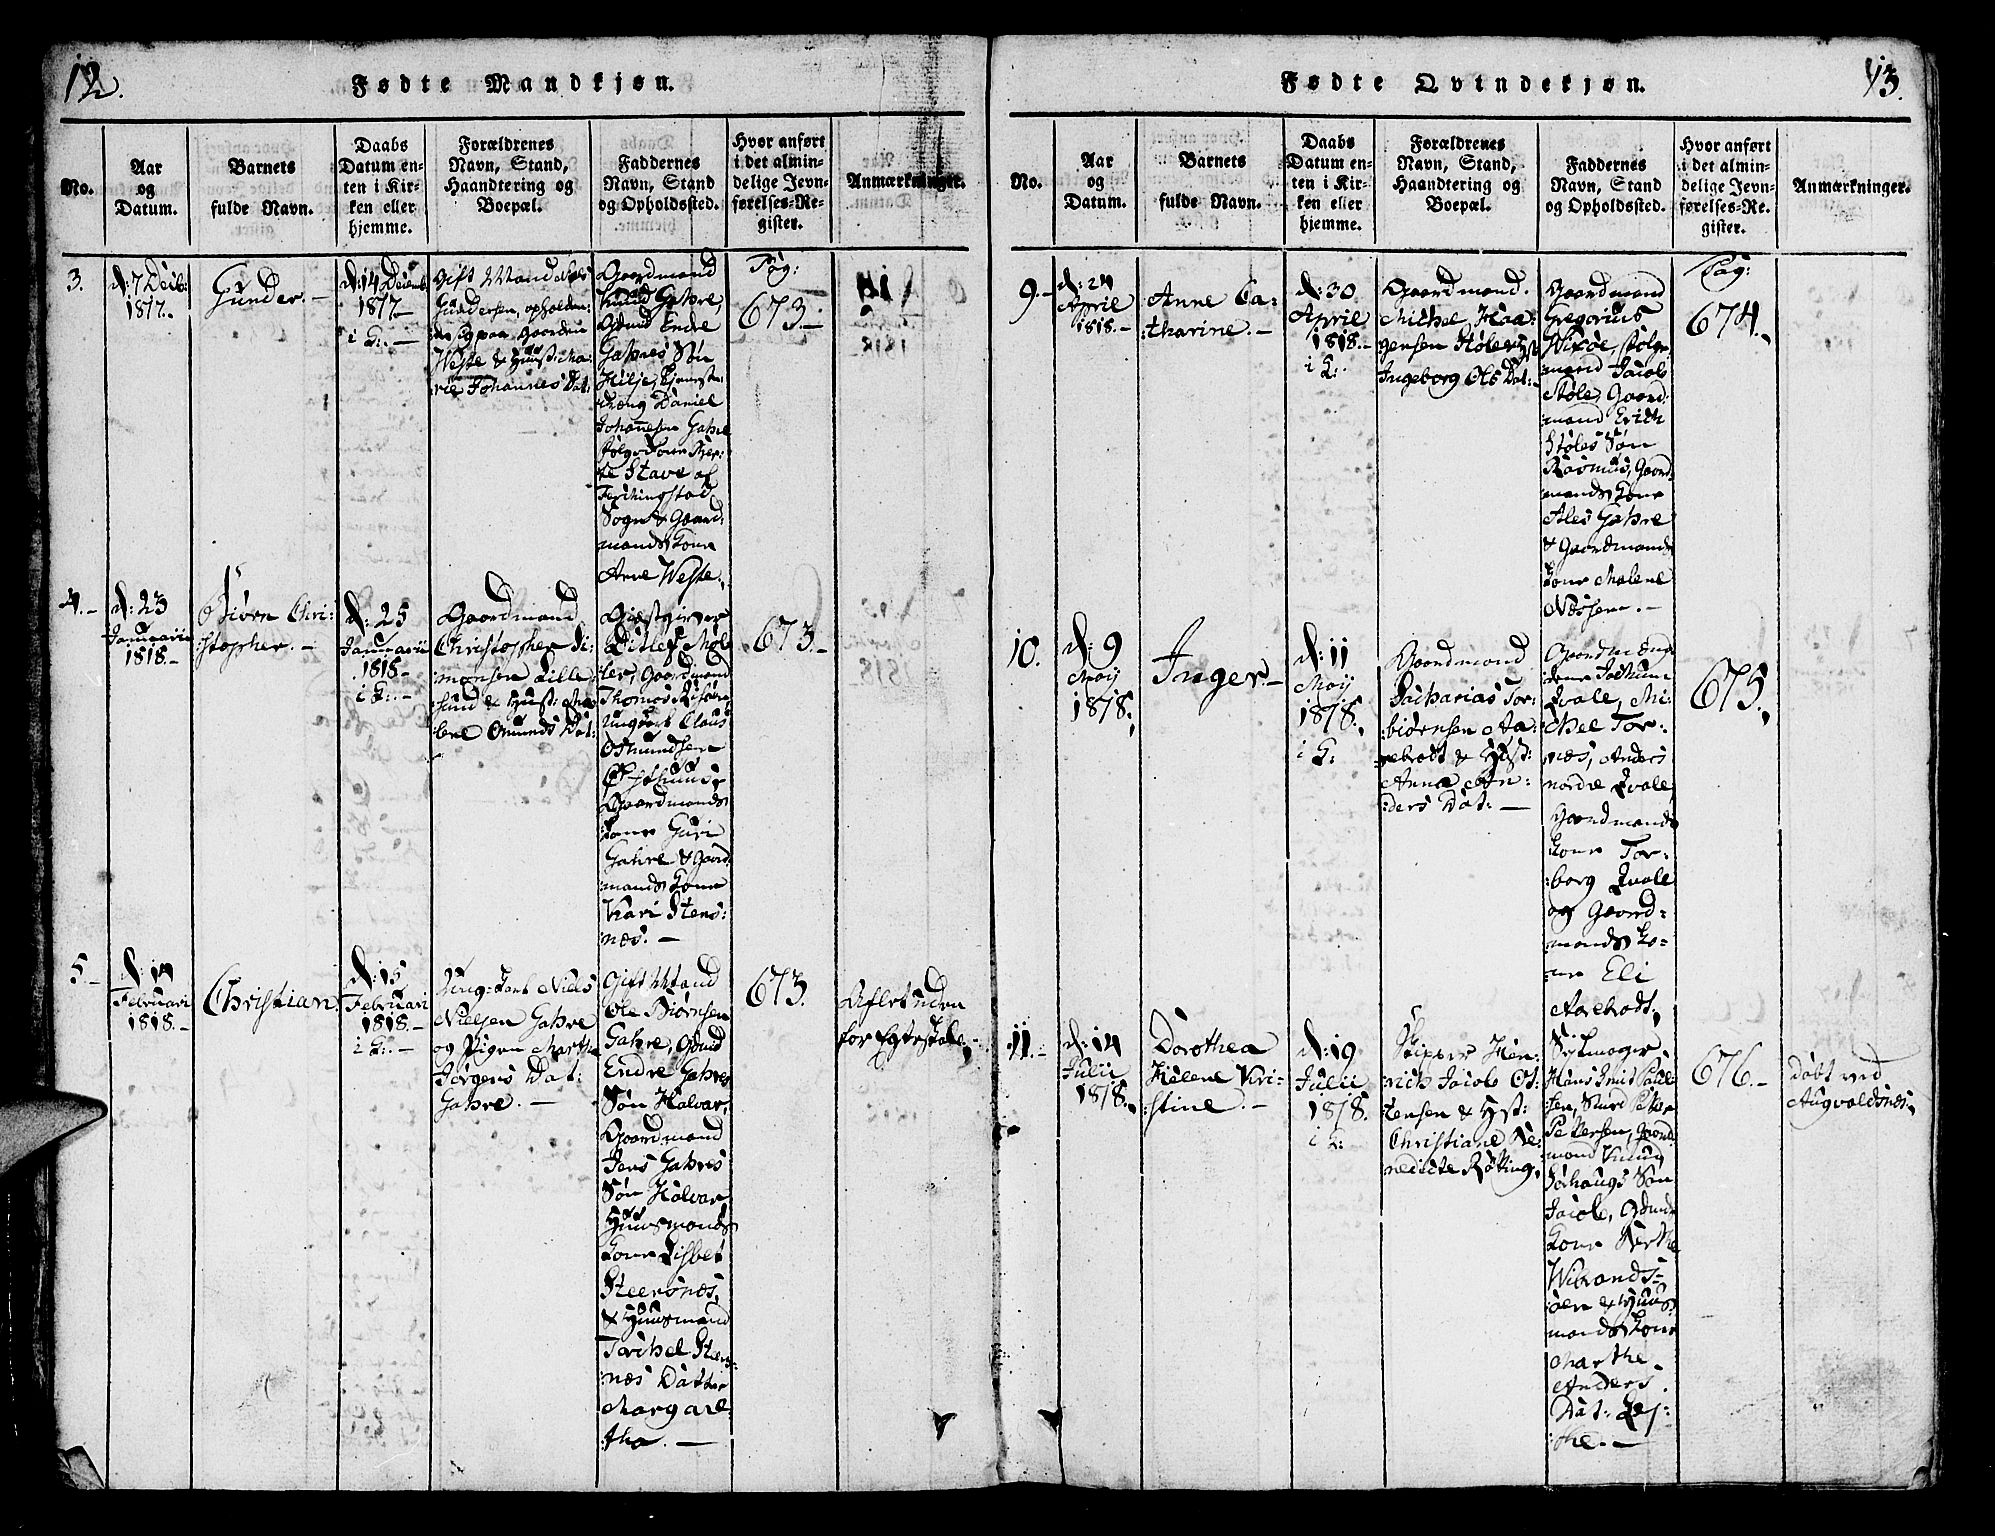 12.
Fødte Mandkjøn.
No.
Aar
og
Datum.
Barnets
fulde Navn.
Daabs
Datum en-
ten i Kir-
ken eller
hjemme.
Forældrenes
Navn, Stand,
Haandtering og
Boepæl.
Faddernes
Navn, Stand
og Opholdssted.
Hvor anført
i det almin-
delige Jevn-
førelses-Re-
gister.
Anmærkninger.
3.
d: 7 Decb:
1817.
Gunder. -
d: 14 Decemb:
1817 -
i K: -
Gift Mand
Gundersen, opholden:
:de sig paa Gaarden
Weste & Hust: Ma:
:rie Johannes Dat:
Gaardmand
Knud Gahre,
Endre
Gahres Søn
Kilje, Tieneste
:dreng Daniel
Johannesen Gahre
Ber:
:te Stave af
Ferchingstad
Sogn & Gaard:
:mands Kone
Ane Weste.
Pag:
673. -
4. -
d: 23
Januarii
1818. -
Biørn Chri:
:stopher. -
d: 25
Januarii
1818 -
i K: -
Gaardmand
Christopher Si:
:monsen Lille:
:sund & Hust: Ma:
:lene Omunds Dat:
Giæstgiver
Ditlef Møl:
:ler, Gaardmand
Thomas
Ungkarl Claus
Osmundsen
Gaardmands
Kone Guri
Gahre & Gaard:
:mands Kone
Kari Stens:
:næs. -
673. -
5. -
d: 14
Februari
1818. -
Christian
d: 15
Februari
1818. -
i K: -
Ung-Karl Niels
Nielsen Gahre
og Pigen Martha
Jørgens Dat:
Gahre. -
Gift Mand
Ole Biørnsen
Gahre, Gmd
Endre Gahres
Søn Halvar,
Gaardmand
Jens Gahres
Søn Halvar,
Huusmands
Kone Lisbet
Steensnæs,
& Huusmand
Torchel Steens:
:næs Datter
Margare:
:tha. -
673.
Aflet uden
for Egteskab. -
13.
Fødte Qvindekjøn.
No.
Aar
og
Datum.
Barnets
fulde Navn.
Daabs
Datum en-
ten i Kir-
ken eller
hjemme.
Forældrenes
Navn, Stand,
Haandtering og
Boepæl.
Faddernes
Navn, Stand
og Opholdssted.
Hvor anført
i det almin-
delige Jevn-
førelses-Re-
gister.
Anmærkninger.
9. -
d: 24
April
1818. -
Anne Ca:
:tharine. -
d: 30
April
1818. -
i K:
Gaardmand
Michel Haa:
:gensen Støle & Hust
Ingeborg Ols Dat: -
Gaardmand
Gregorius
Wixøe, Følge:
:mand Jacob
Støle, Gaard:
:mand Erich
Støles Søn
Rasmus, Gaard:
:mands Kone
Ales Gahre
& Gaardmands
Kone Malene
Næssen. -
Pag:
674. -
10.
d: 9
Maij
1818.
Inger. -
d: 11
Maij
1818.
i K:
Gaardmand
Zacharias Tor:
:biørnsen Aa:
:rebrott & Hust:
Anna An:
:ders Dat: -
Gaardmænd:
:dene Jochum
Qvale, Mi:
:chel Tor:
:næs, Anders
nordre Qvale,
Gaardmands
Kone Tor:
:borg Qvale
og Gaard:
:mands Ko:
:ne Eli
675.
11. -
d: 14
Julii
1818.
Dorothea
Helene Kri:
:stine. -
d: 19
Julii
1818.
i K:
Skipper Hen:
:rich Jacob Ot:
:tensen & Hust:
Christiane Be:
:nedicte Røtting.
Hans Knud
Peder
Petersen, Gaard:
:mand Knud
Sørhaugs Søn
Jacob, Gdmds
Kone Berthe
Wibrands:
:øen & Huus:
:mands Kone
Marthe
Anders
Dat:
676. -
døbt ved
Augvaldsnæs.